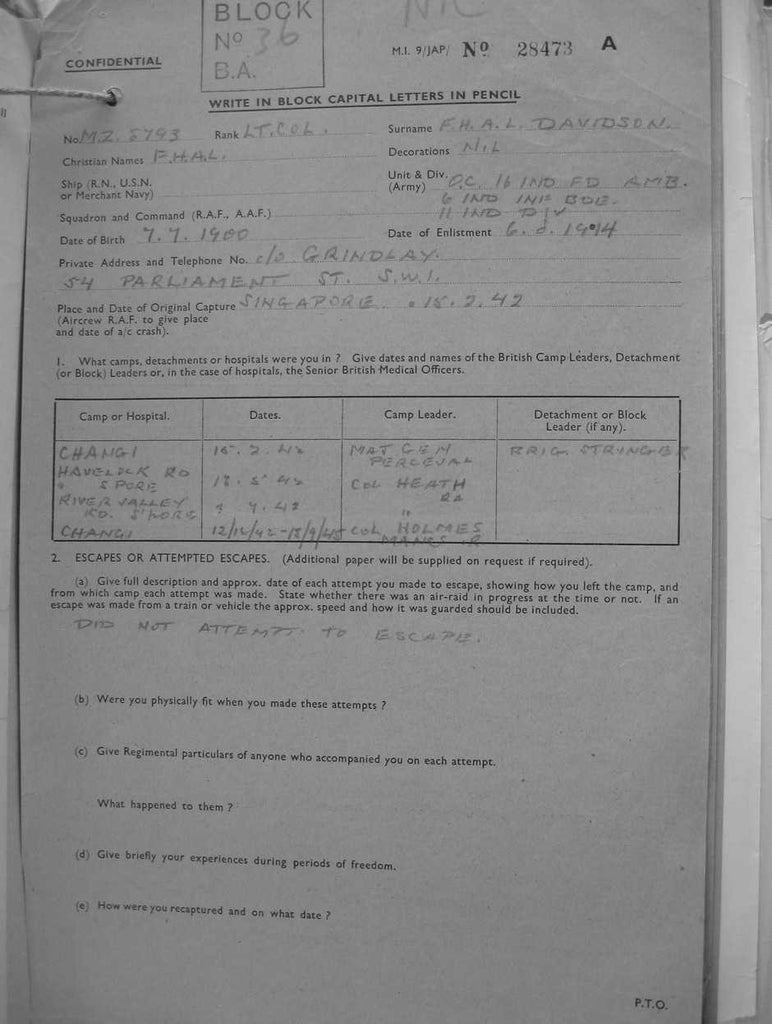 BLOCK
Nº 36
B.A.
NIL
CONFIDENTIAL
M.I. 9/JAP/ Nº 28473 A
WRITE IN BLOCK CAPITAL LETTERS IN PENCIL
No. MZ. 5793 Rank LT. COL. Surname F.H.A.L. DAVIDSON.
Christian Names F.H.A.L. Decorations NIL
Ship (R.N., U.S.N. or Merchant Navy)
Unit & Div. (Army) O.C. 16 IND FD AMB.
6 IND INF BDE.
11 IND DIV
Squadron and Command (R.A.F., A.A.F.)
Date of Birth 7.7.1900 Date of Enlistment 6. 1914
Private Address and Telephone No. c/o GRINDLAY.
54 PARLIAMENT ST. S.W.1.
Place and Date of Original Capture SINGAPORE. 15.2.42
(Aircrew R.A.F. to give place
and date of a/c crash).
1. What camps, detachments or hospitals were you in ? Give dates and names of the British Camp Leaders, Detachment
(or Block) Leaders or, in the case of hospitals, the Senior British Medical Officers.
Camp or Hospital. Dates. Camp Leader. Detachment or Block Leader (if any).
CHANGI 15.2.42 MAJ GEN PERCEVAL BRIG. STRINGER
HAVELOCK RD
" S'PORE 18.5.42 COL HEATH RA
RIVER VALLEY RD. S'PORE 9.42 "
CHANGI 12/12/42-15/9/45 COL HOLMES
MANCS. R
2. ESCAPES OR ATTEMPTED ESCAPES. (Additional paper will be supplied on request if required).
(a) Give full description and approx. date of each attempt you made to escape, showing how you left the camp, and
from which camp each attempt was made. State whether there was an air-raid in progress at the time or not. If an
escape was made from a train or vehicle the approx. speed and how it was guarded should be included.
DID NOT ATTEMPT TO ESCAPE.
(b) Were you physically fit when you made these attempts ?
(c) Give Regimental particulars of anyone who accompanied you on each attempt.
What happened to them ?
(d) Give briefly your experiences during periods of freedom.
(e) How were you recaptured and on what date ?
P.T.O.